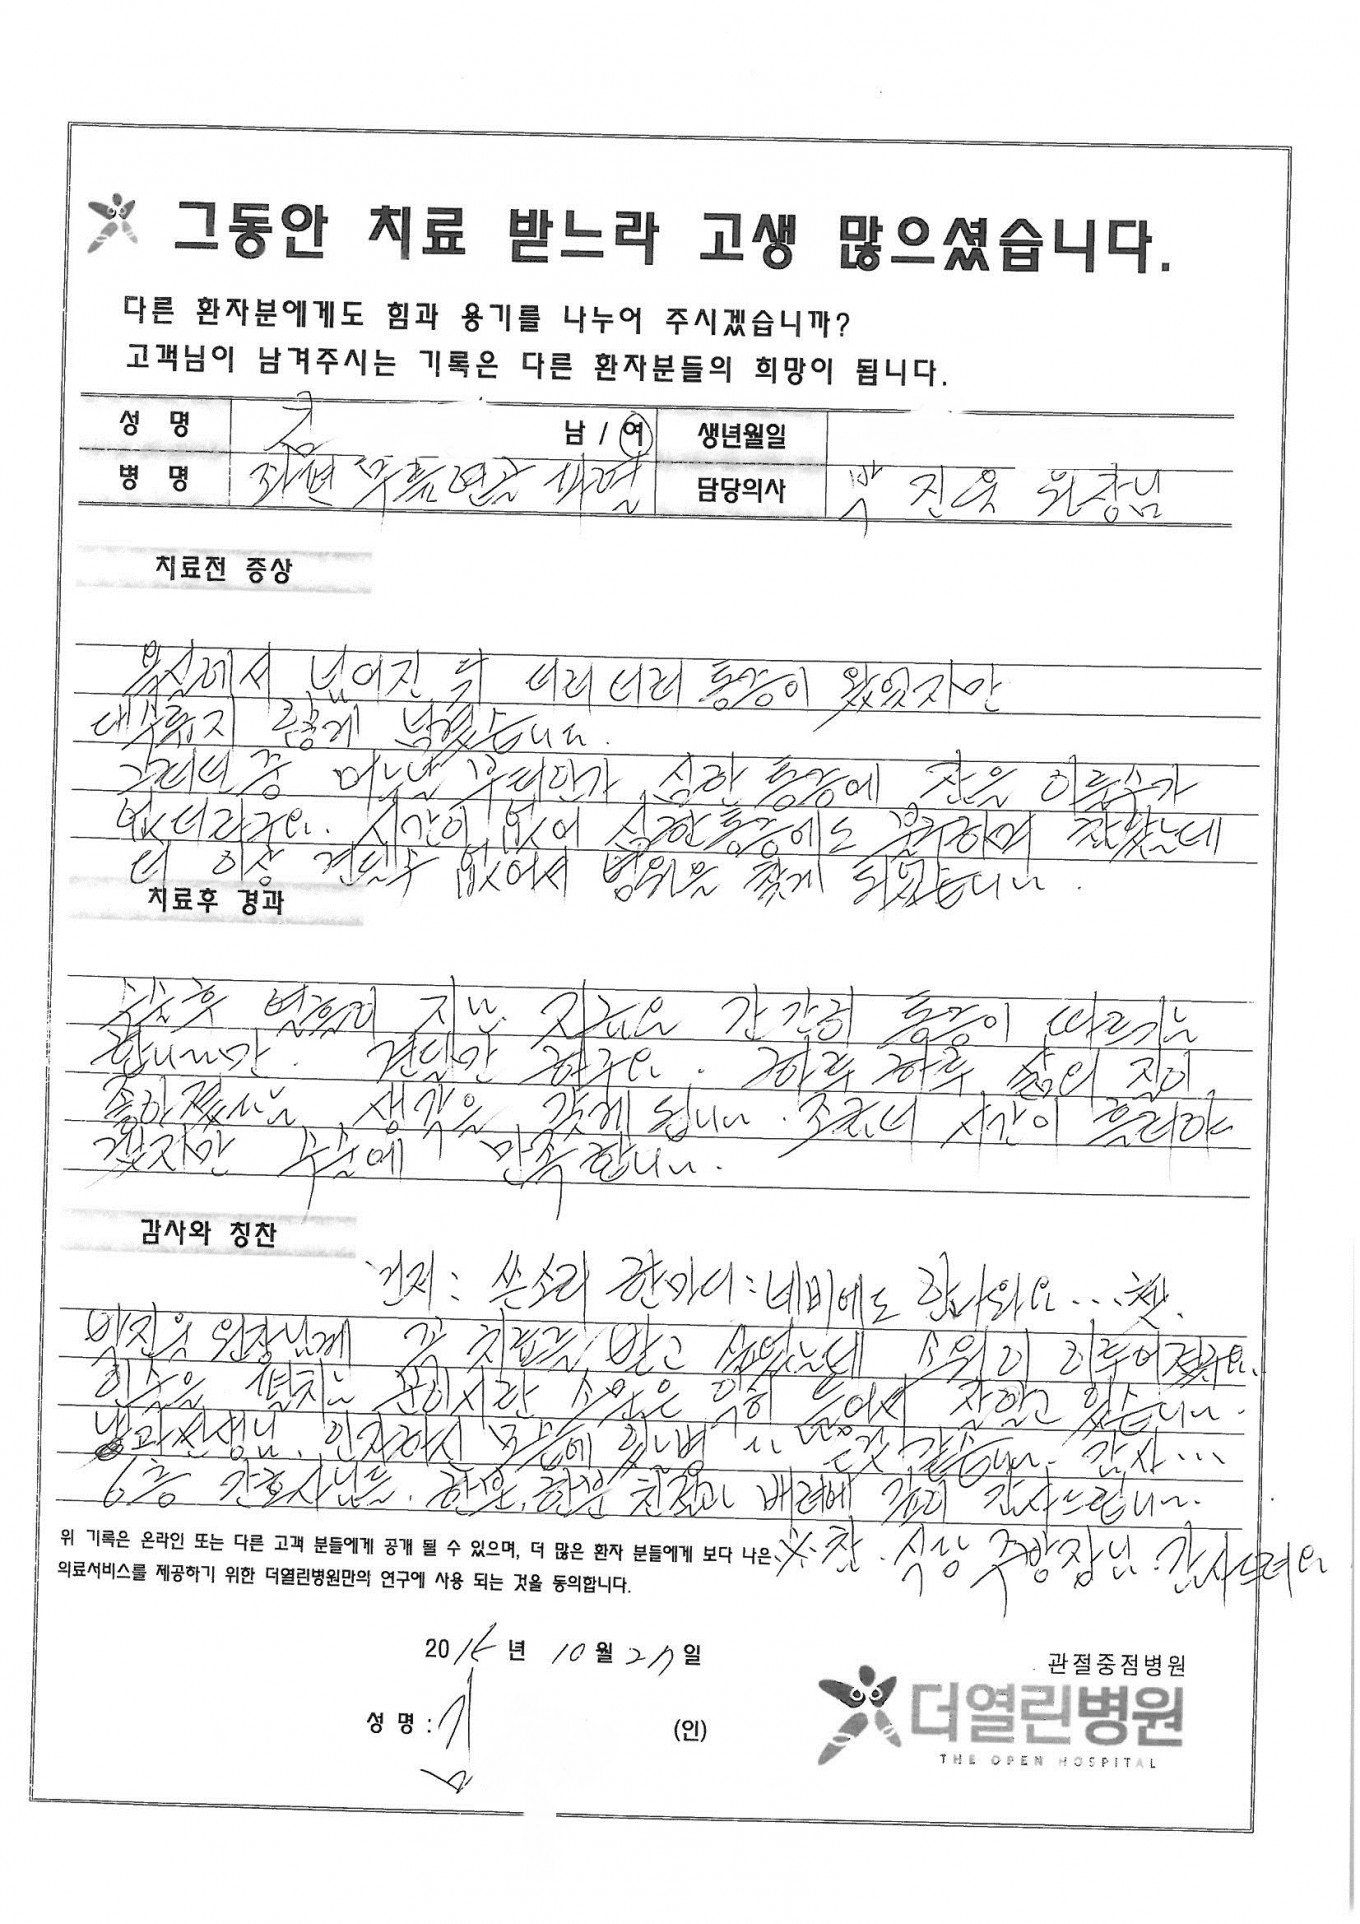 그동안 치료 받느라 고생 많으셨습니다.
다른 환자분에게도 힘과 용기를 나누어 주시겠습니까?
고객님이 남겨주시는 기록은 다른 환자분들의 희망이 됩니다.
성 명 남 / 여 생년월일
병 명 좌편 무릎연골 파열 담당의사 박진욱 원장님
치료전 증상
욕실에서 넘어진 뒤 통증이 왔었지만
대수롭지 않게 넘겼습니다.
그러더 중 어느날 심한 통증에 잠을 이룰수가
없더라구요. 시간이 없어 심한통증에도 참았는데
더 이상 견딜수 없어서 병원을 찾게 되었습니다.
치료후 경과
수술후 열흘이 지난 지금은 간간히 통증이 따르기는
합니다만. 견딜만 하구요. 하루 하루 삶의 질이
좋아졌다는 생각을 갖게 됩니다. 조금더 시간이 흘러야
겠지만 수술에 만족합니다.
감사와 칭찬
먼저: 쓴소리 한마디: 네비에도 안나와요...
박진욱 원장님께 꼭 치료를 받고 싶었는데 소원이 이루어졌구요.
인술을 펼치는 분이시란 소문은 익히 들어서 잘알고 있습니다.
선생님, 인자하신 모습에 같습니다. 감사...
6층 간호사님들. 한분, 한분 친절과 배려에 깊이 감사드립니다.
위 기록은 온라인 또는 다른 고객 분들에게 공개 될 수 있으며, 더 많은 환자 분들에게 보다 나은
※ 참. 식당 주방장님 감사드려요
의료서비스를 제공하기 위한 더열린병원만의 연구에 사용 되는 것을 동의합니다.
2015년 10월 27일
성 명 : 김 (인)
관절중점병원
더열린병원
THE OPEN HOSPITAL